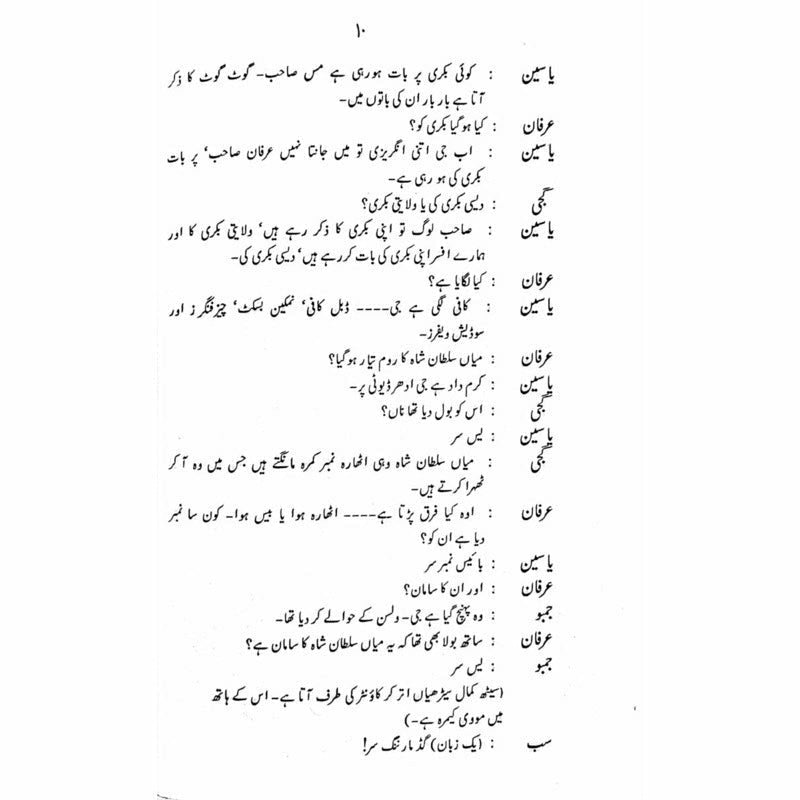 ۱۰
یاسین : کوئی بکری پر بات ہو رہی ہے مس صاحب۔ گوٹ گوٹ کا ذکر
آتا ہے بار بار ان کی باتوں میں۔
عرفان : کیا ہو گیا بکری کو؟
یاسین : اب جی اتنی انگریزی تو میں جانتا نہیں عرفان صاحب‘ پر بات
بکری کی ہو رہی ہے۔
گجی : دیسی بکری کی یا ولایتی بکری؟
یاسین : صاحب لوگ تو اپنی بکری کا ذکر رہے ہیں‘ ولایتی بکری کا اور
ہمارے افسر اپنی بکری کی بات کر رہے ہیں‘ دیسی بکری کی۔
عرفان : کیا لگایا ہے؟
یاسین : کافی لگی ہے جی۔۔۔۔ ڈبل کافی‘ نمکین بسکٹ‘ چیز فنگرز اور
سوڈیش ویفرز۔
عرفان : میاں سلطان شاہ کا روم تیار ہو گیا؟
یاسین : کرم داد ہے جی ادھر ڈیوٹی پر۔
گجی : اس کو بول دیا تھا ناں؟
یاسین : یس سر
گجی : میاں سلطان شاہ وہی اٹھارہ نمبر کمرہ مانگتے ہیں جس میں وہ آ کر
ٹھہرا کرتے ہیں۔
عرفان : اوہ کیا فرق پڑتا ہے۔۔۔۔ اٹھارہ ہوا یا بیس ہوا۔ کون سا نمبر
دیا ہے ان کو؟
یاسین : بائیس نمبر سر
عرفان : اور ان کا سامان؟
جمبو : وہ پہنچ گیا ہے جی۔ ولسن کے حوالے کر دیا تھا۔
عرفان : ساتھ بولا بھی تھا کہ یہ میاں سلطان شاہ کا سامان ہے؟
جمبو : یس سر
(سیٹھ کمال سیڑھیاں اتر کر کاؤنٹر کی طرف آتا ہے۔ اس کے ہاتھ
میں مووی کیمرہ ہے۔)
سب : (یک زبان) گڈ مارننگ سر!